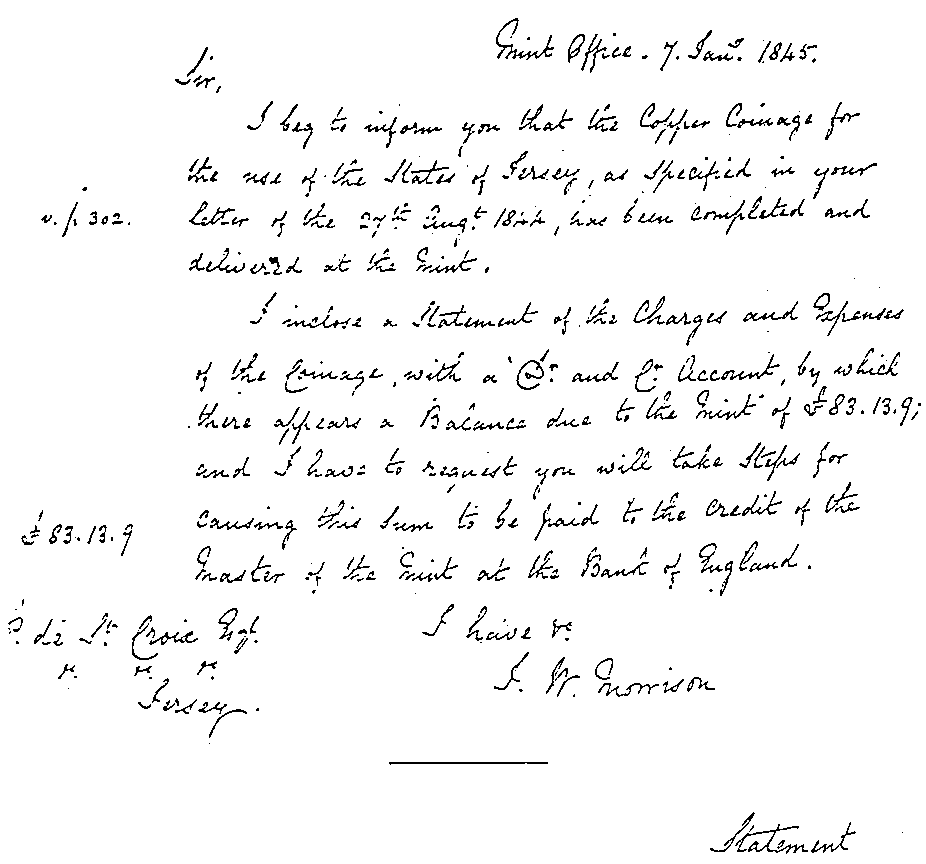 Mint Office. 7. Jany. 1845.
Sir,
I beg to inform you that the Copper Coinage for
the use of the States of Jersey, as specified in your
v. p 302.
letter of the 27th Augt. 1844, has been completed and
delivered at the Mint.
I inclose a Statement of the Charges and Expenses
of the Coinage, with a Dr. and Cr. Account, by which
there appears a Balance due to the Mint of £83.13.9;
and I have to request you will take Steps for
causing this Sum to be paid to the credit of the
£83.13.9
Master of the Mint at the Bank of England.
P. de Ste. Croix Esqr.
I have &c.
&c. &c. &c.
J. W. Morrison
Jersey.
Statement